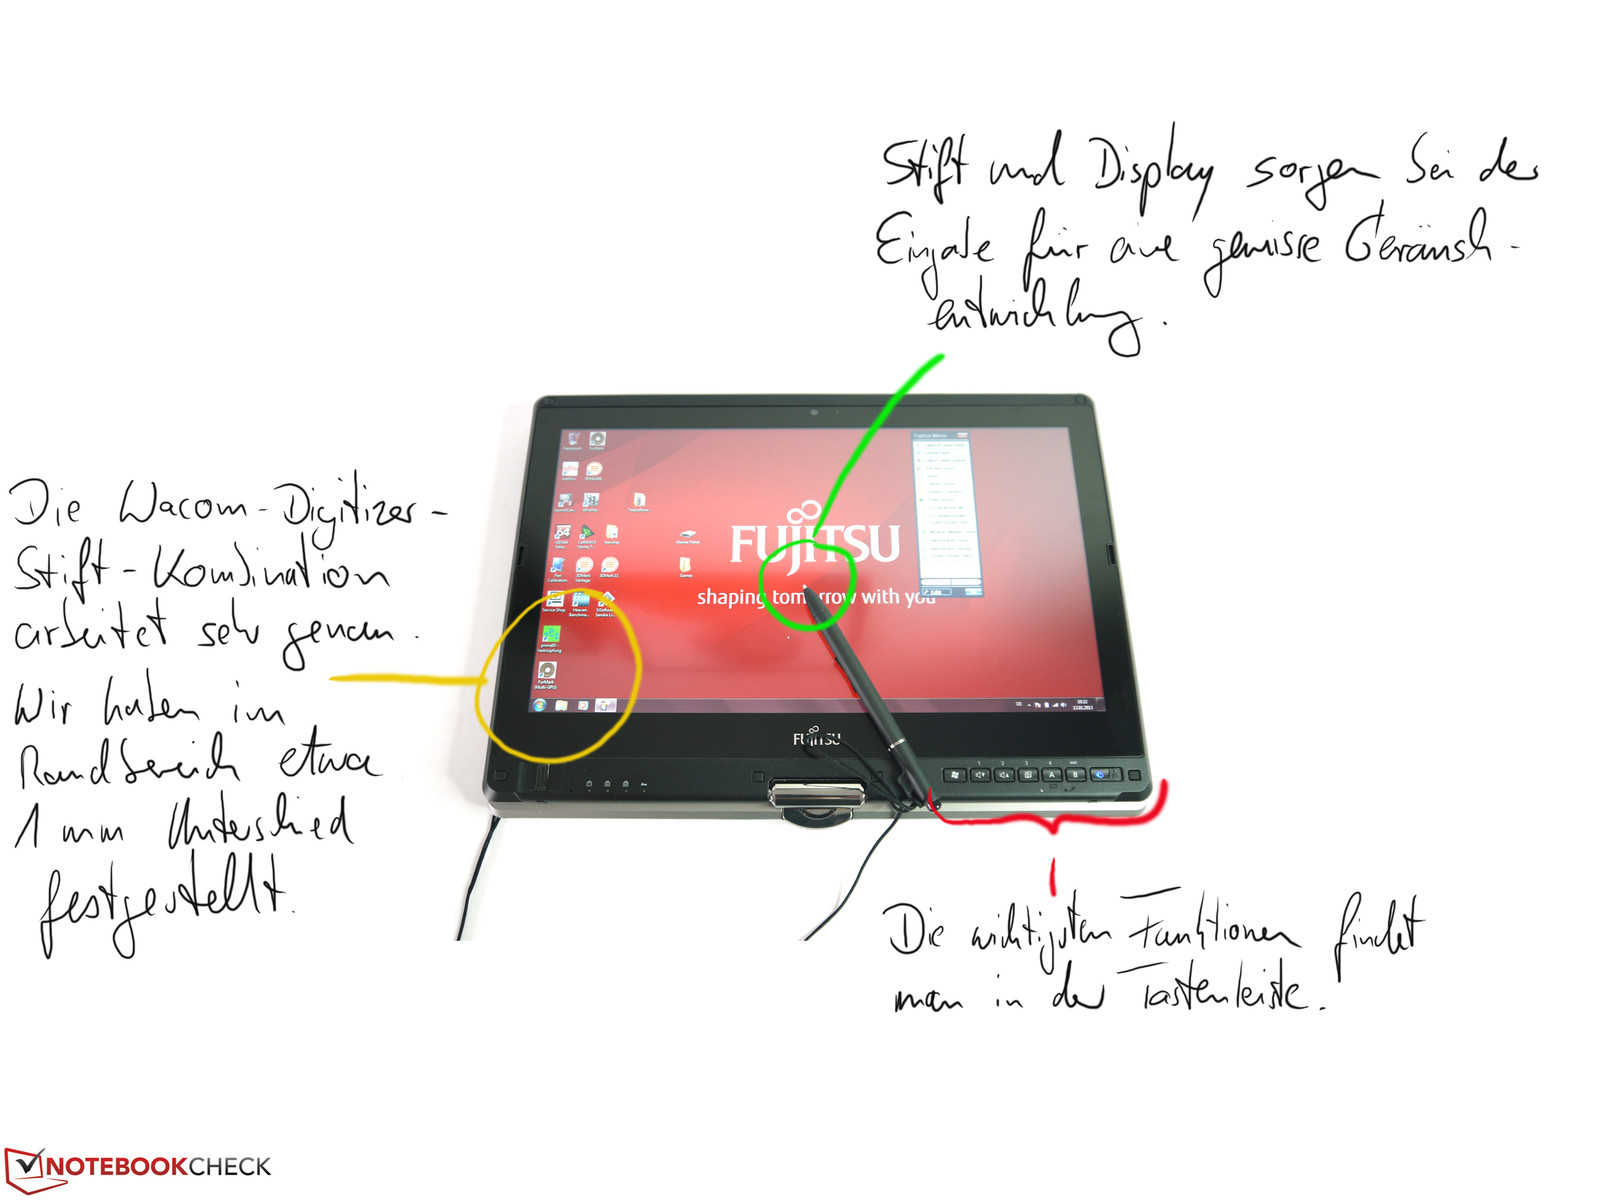 Stift und Display sorgen bei der
Eingabe für eine gewisse Geräusch-
entwicklung.
Die Wacom-Digitizer-
Stift-Kombination
arbeitet sehr genau.
Wir haben im
Randbereich etwa
1 mm Unterschied
festgestellt.
FUJITSU
shaping tomorrow with you
Fujitsu Menu
Edit
Service Shop
FUJITSU
A
B
Die wichtigsten Funktionen findet
man in der Tastenleiste.
NOTEBOOKCHECK